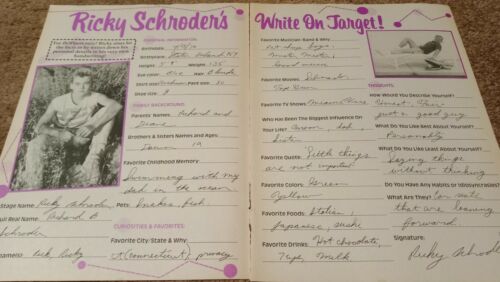 Ricky Schroder's
For the first time! Ricky gives us
the facts as he writes down his
personal details in his very own
handwriting!
PERSONAL INFORMATION
Birthdate:
Birthplace: Staten Island NY
Height: 5' 9" Weight: 135
Eye color: Blue Hair: Blonde
Shirt size: medium Pant size: 30
Shoe size: 9
FAMILY BACKGROUND:
Parents' Names: Richard and
Diane
Brothers & Sisters Names and Ages:
Dawn 19
Favorite Childhood Memory:
Swimming with my
dad in the ocean
Stage Name: Ricky Schroder
Full Real Name: Richard B
Schroder
Nickname(s): Rick, Ricky
Pets: Snakes, fish
CURIOSITIES & FAVORITES:
Favorite City-State & Why:
Ct (Connecticut) privacy
Write On Target!
Favorite Musician/Band & Why:
Pet shop boys.
Mister Mister,
Good music
Favorite Movies:
Top Gun
Favorite TV Shows: Miami Vice
Who Has Been The Biggest Influence On
Your Life? Mom, dad
Sister
Favorite Quote: Little things
are not important
Favorite Colors: Green
Yellow
Favorite Foods: Italian,
Japanese, sushi
Favorite Drinks: Hot chocolate,
7up, Milk
THOUGHTS:
How Would You Describe Yourself?
Honest, Fair
just a good guy
What Do You Like Best About Yourself?
Personality
What Do You Like Least About Yourself?
Saying things
without thinking
Do You Have Any Habits or Idiosyncrasies?
What Are They? Car seats
that are leaning
forward.
Signature:
Ricky Schroder